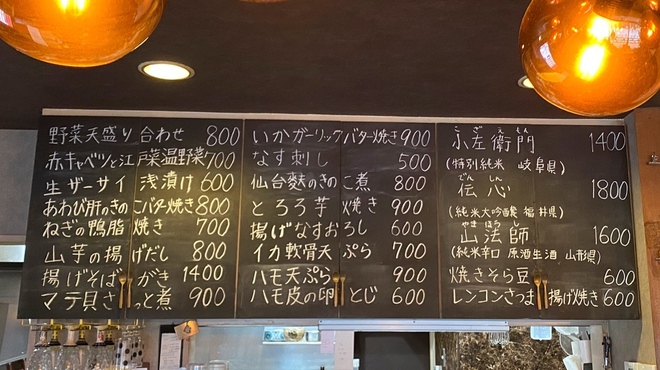 野菜天盛り合わせ 800
赤キャベツと江戸菜温野菜 700
生ザーサイ浅漬け 600
あわび肝のきのこバタ焼き 800
ねぎの鴨脂焼き 700
山芋の揚げだし 800
揚げそばがき 1400
マテ貝さっと煮 900
いかガーリックバター焼き 900
なす刺し 500
仙台麩のきのこ煮 800
とろろ芋焼き 900
揚げなすおろし 600
イカ軟骨天ぷら 700
ハモ天ぷら 900
ハモ皮の卵とじ 600
こざえもん
小左衛門 1400
(特別純米 岐阜県)
でんしん
伝心 1800
(純米大吟醸 福井県)
やまほうし
山法師 1600
(純米辛口 原酒生酒 山形県)
焼きそら豆 600
レンコンさつま揚げ焼き 600